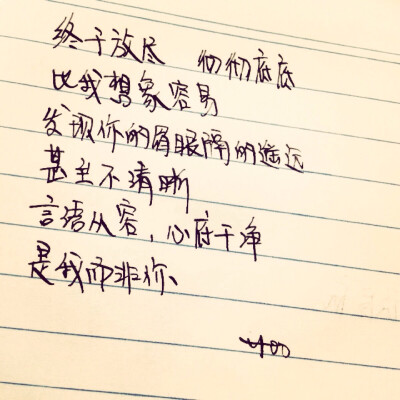 终于放尽 彻彻底底
比我想象容易
发现你的眉眼隔的遥远
甚至不清晰
言语从容，心府干净
是我而非你、